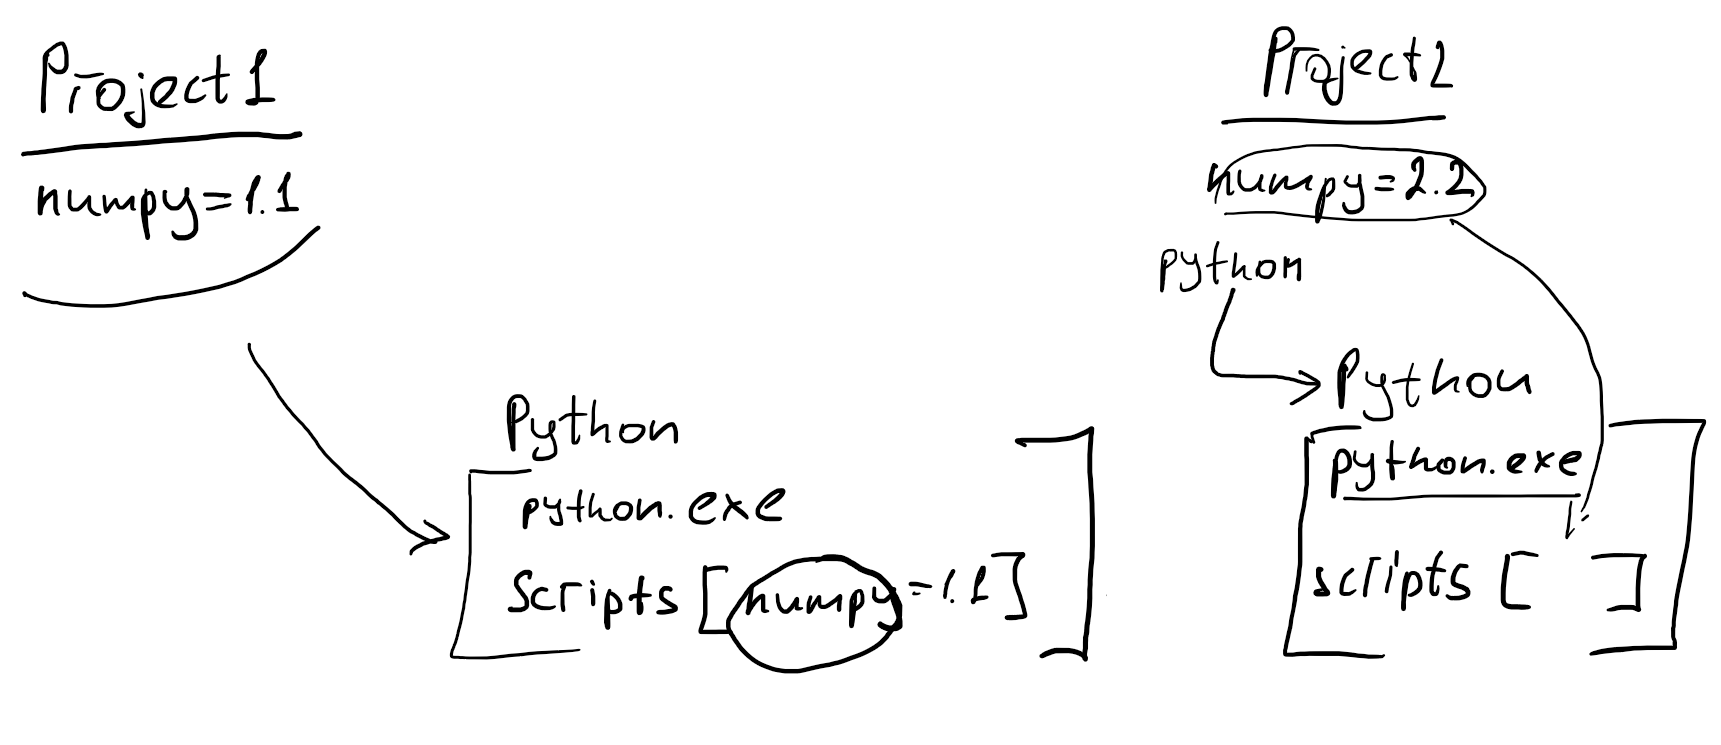 Project1
numpy=1.1
Python
python.exe
Scripts [numpy=1.1]
Project2
numpy=2.2
python
Python
python.exe
scripts [ ]